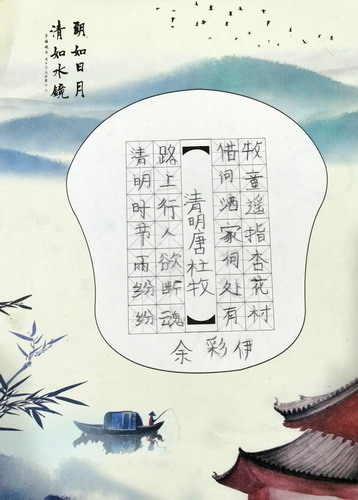 朗如日月
清如水镜
清明时节雨纷纷
路上行人欲断魂
清明唐杜牧
借问酒家何处有
牧童遥指杏花村
余彩伊